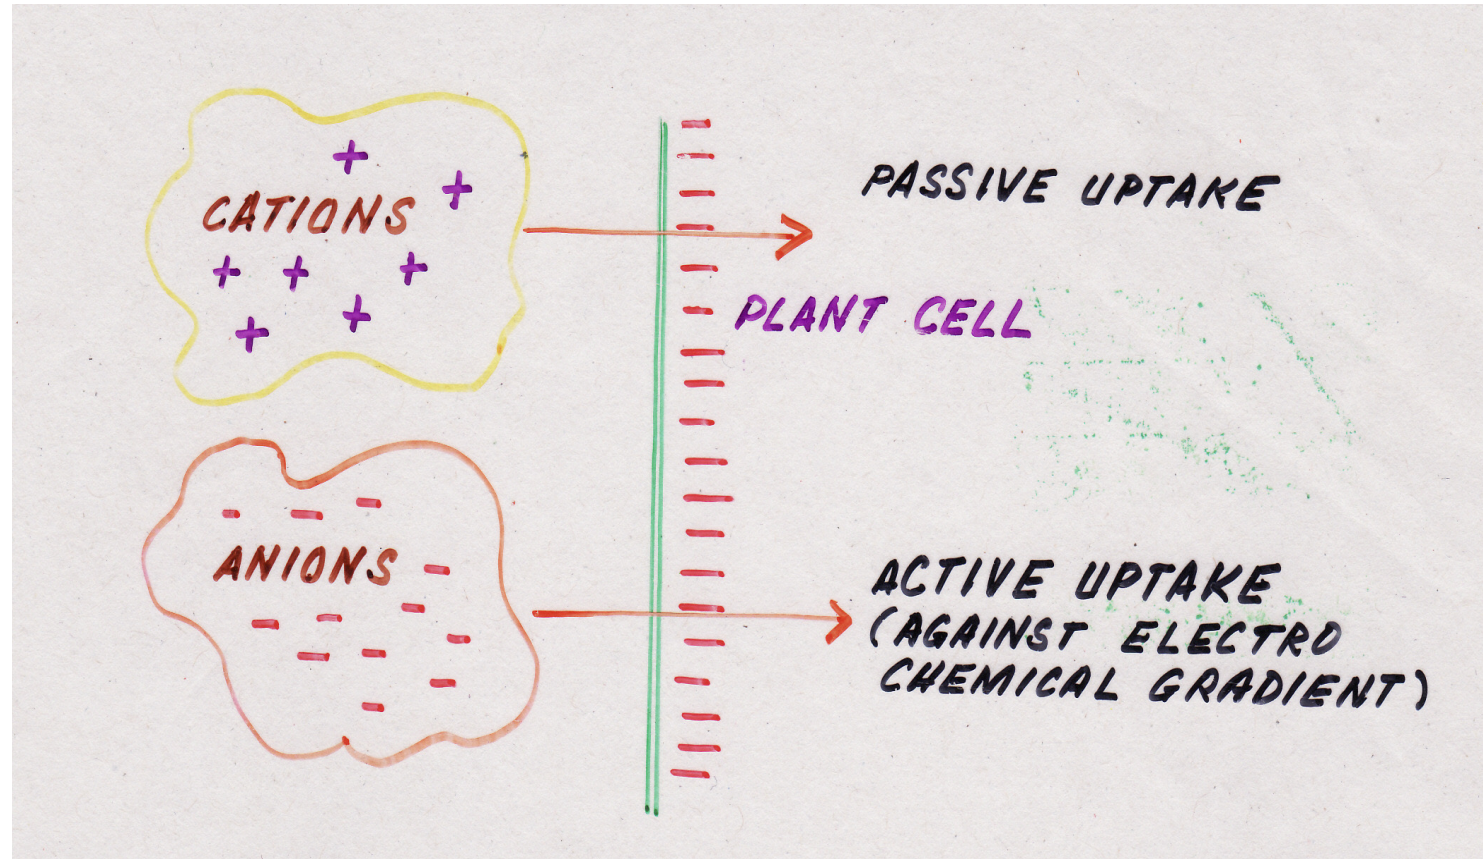 CATIONS
PASSIVE UPTAKE
PLANT CELL
ANIONS
ACTIVE UPTAKE
(AGAINST ELECTRO
CHEMICAL GRADIENT)